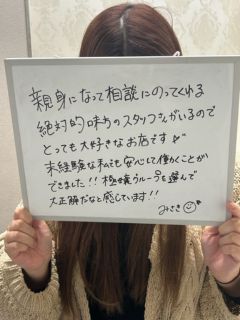 親身になって相談にのってくれる
絶対的味方のスタッフさんがいるので
とっても大好きなお店です
未経験な私でも安心して働くことが
できました!!極嬢グループを選んで
大正解だなと感じています!!
みさき